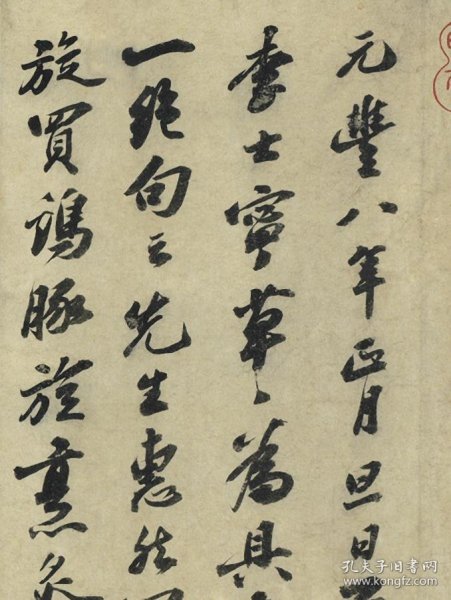 元豐八年正月旦日
李士寧草草為具
一絕句云先生惠然
旋買鷄豚旋烹炙
孔夫子旧书网
www.kongfz.com